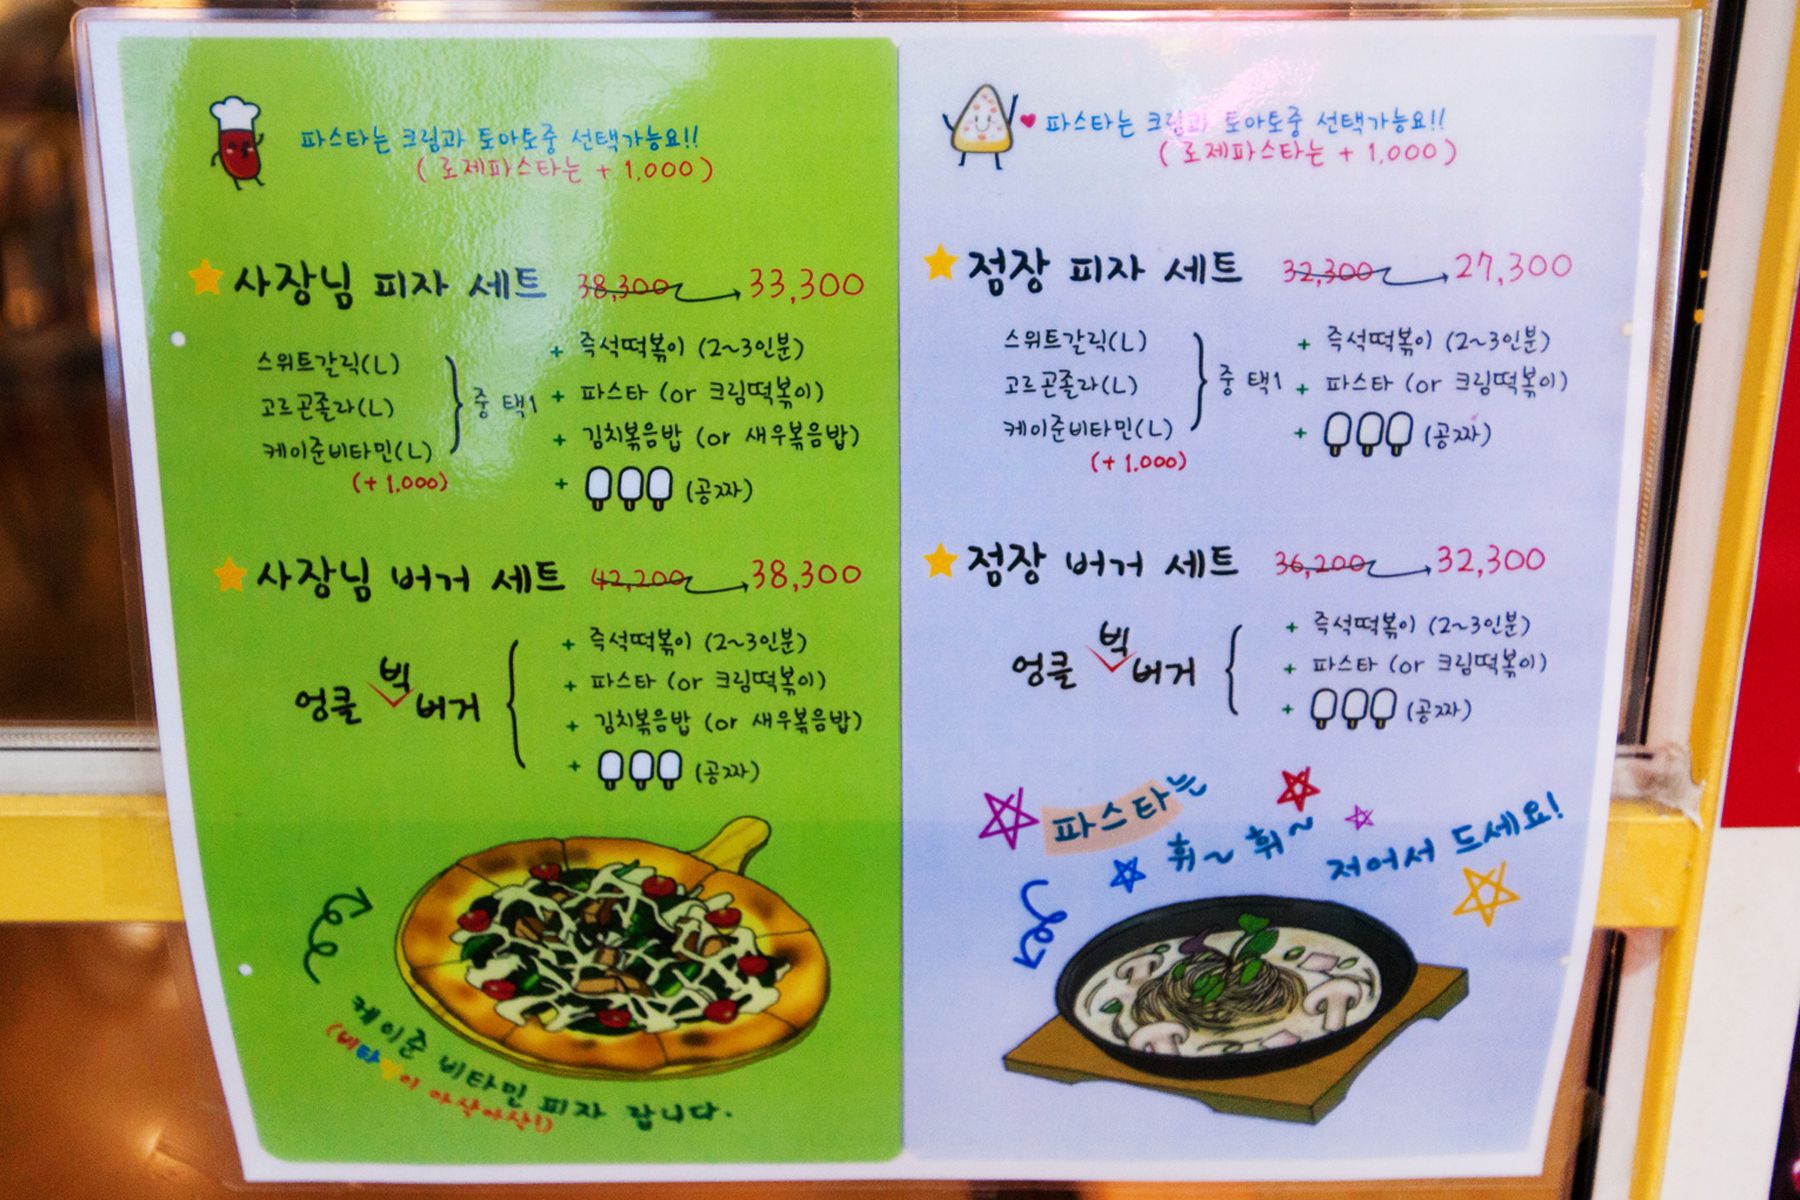 파스타는 크림과 토마토중 선택가능요!!
( 로제파스타는 + 1,000 )
사장님 피자 세트 38,300 33,300
스위트갈릭(L)
고르곤졸라(L)
케이준비타민(L)
(+ 1,000)
중 택1
+ 즉석떡볶이 (2~3인분)
+ 파스타 (or 크림떡볶이)
+ 김치볶음밥 (or 새우볶음밥)
+ (공짜)
사장님 버거 세트 42,200 38,300
엉클 빅 버거
+ 즉석떡볶이 (2~3인분)
+ 파스타 (or 크림떡볶이)
+ 김치볶음밥 (or 새우볶음밥)
+ (공짜)
케이준 비타민 피자 랍니다.
(비타 이 아삭아삭!)
파스타는 크림과 토마토중 선택가능요!!
( 로제파스타는 + 1,000 )
점장 피자 세트 32,300 27,300
스위트갈릭(L)
고르곤졸라(L)
케이준비타민(L)
(+ 1,000)
중 택1
+ 즉석떡볶이 (2~3인분)
+ 파스타 (or 크림떡볶이)
+ (공짜)
점장 버거 세트 36,200 32,300
엉클 빅 버거
+ 즉석떡볶이 (2~3인분)
+ 파스타 (or 크림떡볶이)
+ (공짜)
파스타는
휘~ 휘~
저어서 드세요!